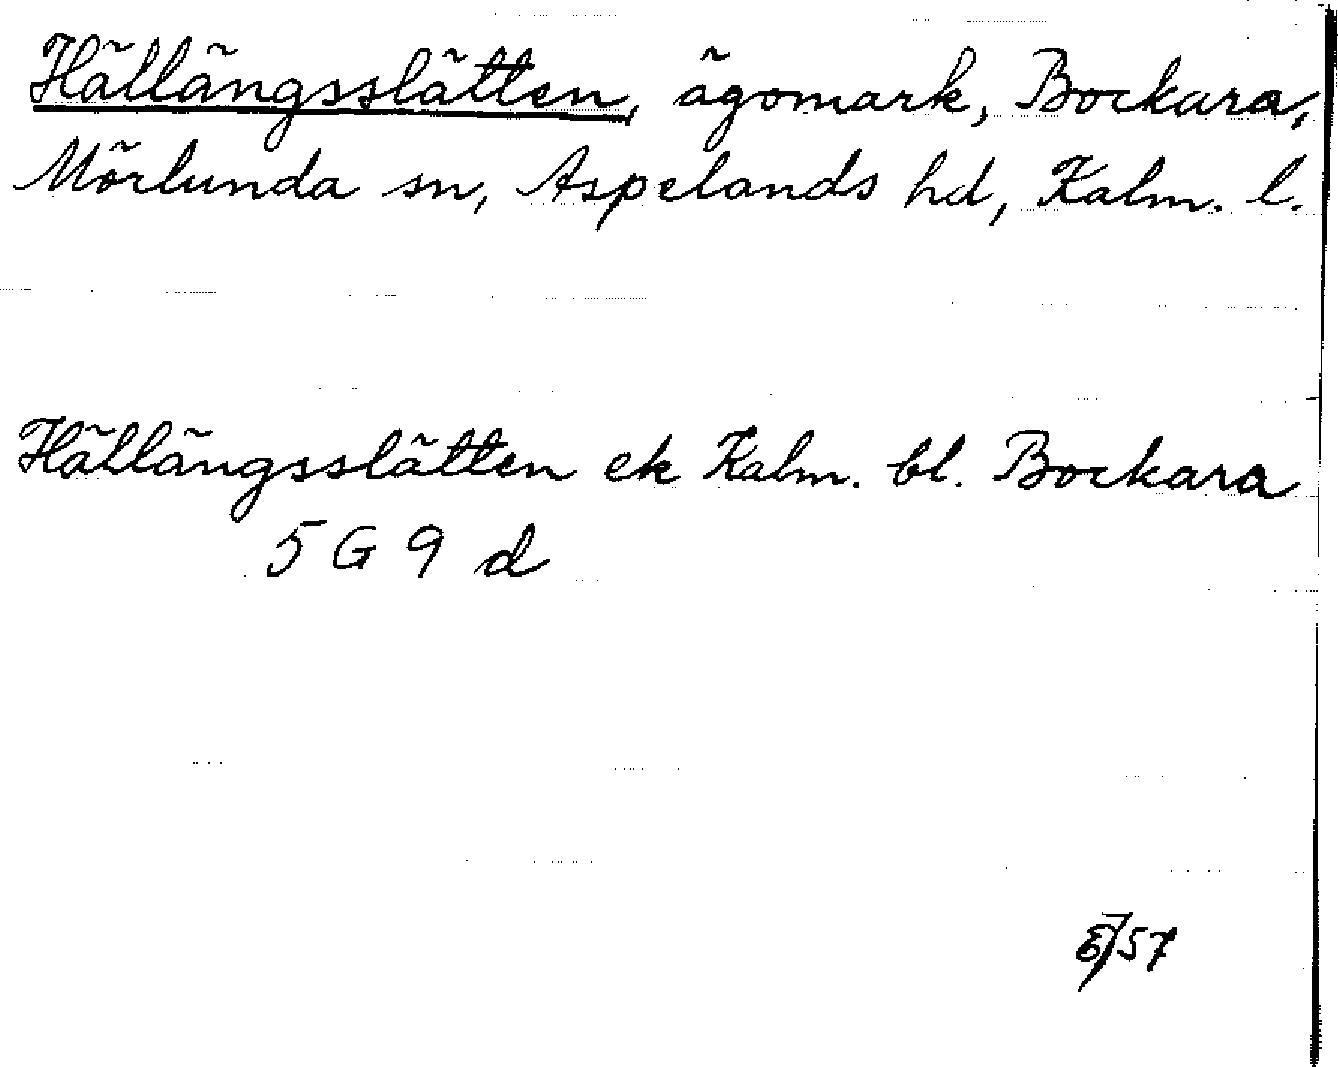 Hällängsslätten, ägomark, Bockara,
Mörlunda sn, Aspelands hd, Kalm. l.
Hällängsslätten ek Kalm. bl. Bockara
5 G 9 d